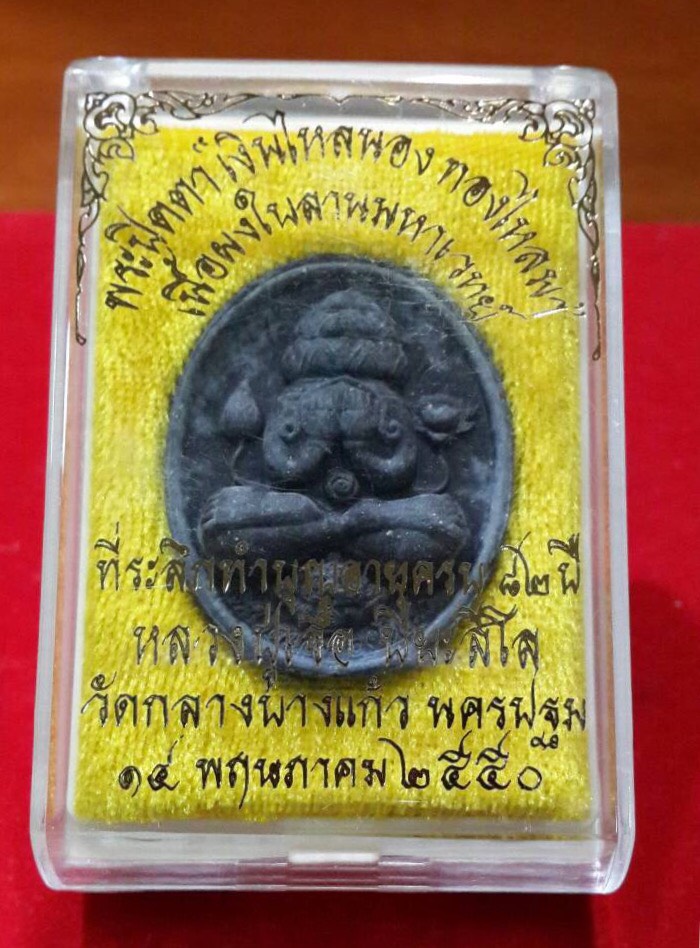 พระปิดตา เงินไหลนอง ทองไหลมา
เนื้อผงใบลานมหาเวทย์
ที่ระลึกทำบุญอายุครบ ๘๒ ปี
หลวงปู่เจือ ปิยสีโล
วัดกลางบางแก้ว นครปฐม
๑๕ พฤษภาคม ๒๕๕๐